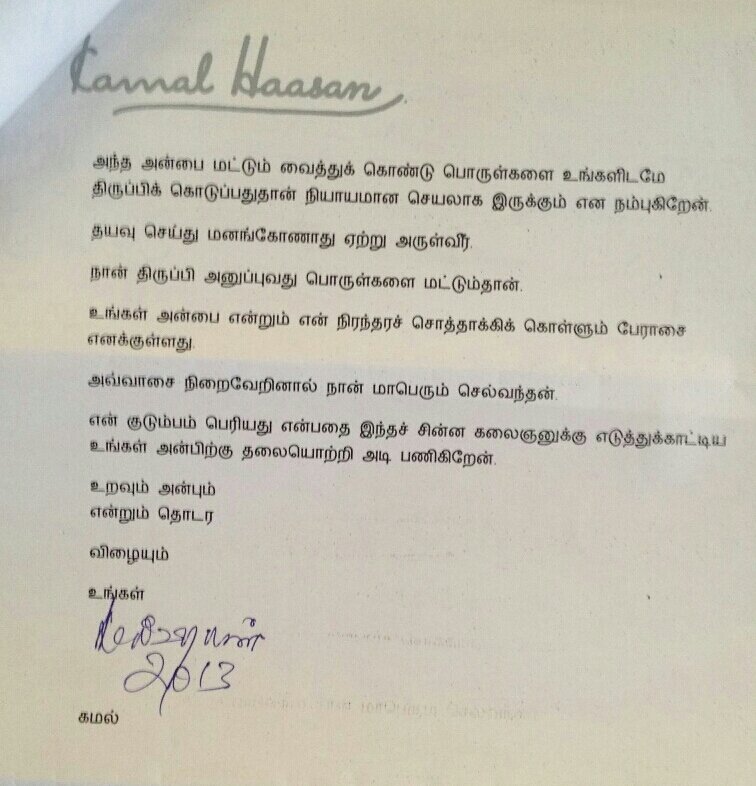 Kamal Haasan
அந்த அன்பை மட்டும் வைத்துக் கொண்டு பொருள்களை உங்களிடமே
திருப்பிக் கொடுப்பதுதான் நியாயமான செயலாக இருக்கும் என நம்புகிறேன்.
தயவு செய்து மனங்கோணாது ஏற்று அருள்வீர்.
நான் திருப்பி அனுப்புவது பொருள்களை மட்டும்தான்.
உங்கள் அன்பை என்றும் என் நிரந்தரச் சொத்தாக்கிக் கொள்ளும் பேராசை
எனக்குள்ளது.
அவ்வாசை நிறைவேறினால் நான் மாபெரும் செல்வந்தன்.
என் குடும்பம் பெரியது என்பதை இந்தச் சின்ன கலைஞனுக்கு எடுத்துக்காட்டிய
உங்கள் அன்பிற்கு தலையொற்றி அடி பணிகிறேன்.
உறவும் அன்பும்
என்றும் தொடர
விழையும்
உங்கள்
2013
கமல்